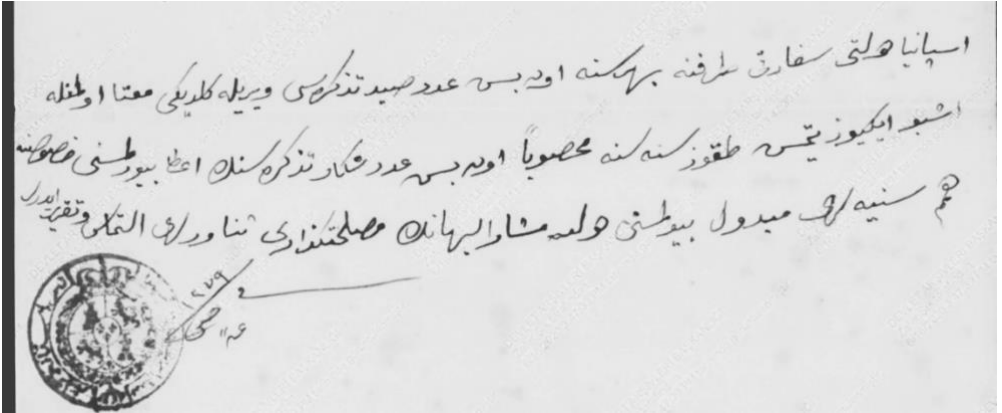 اسپانیا دولتی سفارتی طرفنه بهر سنه اون بش عدد صید تذکره‌سی ویریله کلدیکی معتاد اولمغله
اشبو ایکیوز یتمش طقوز سنه‌سنه محسوباً اون بش عدد شکار تذکره‌سنك اعطا بیورلمسنی خصوصنه
همم سنیه‌لری مبذول بیورلمسی دولت مشار الیهانك مصلحتکذاری ثناورلری التماس و تقریر ایدر
١٢٧٩